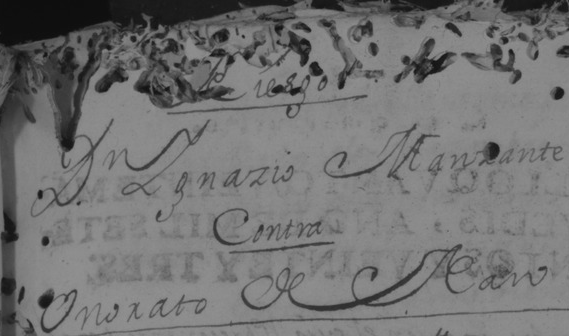 Riezgo
Dn Ignazio Manzante
Contra
Onorato de Haro